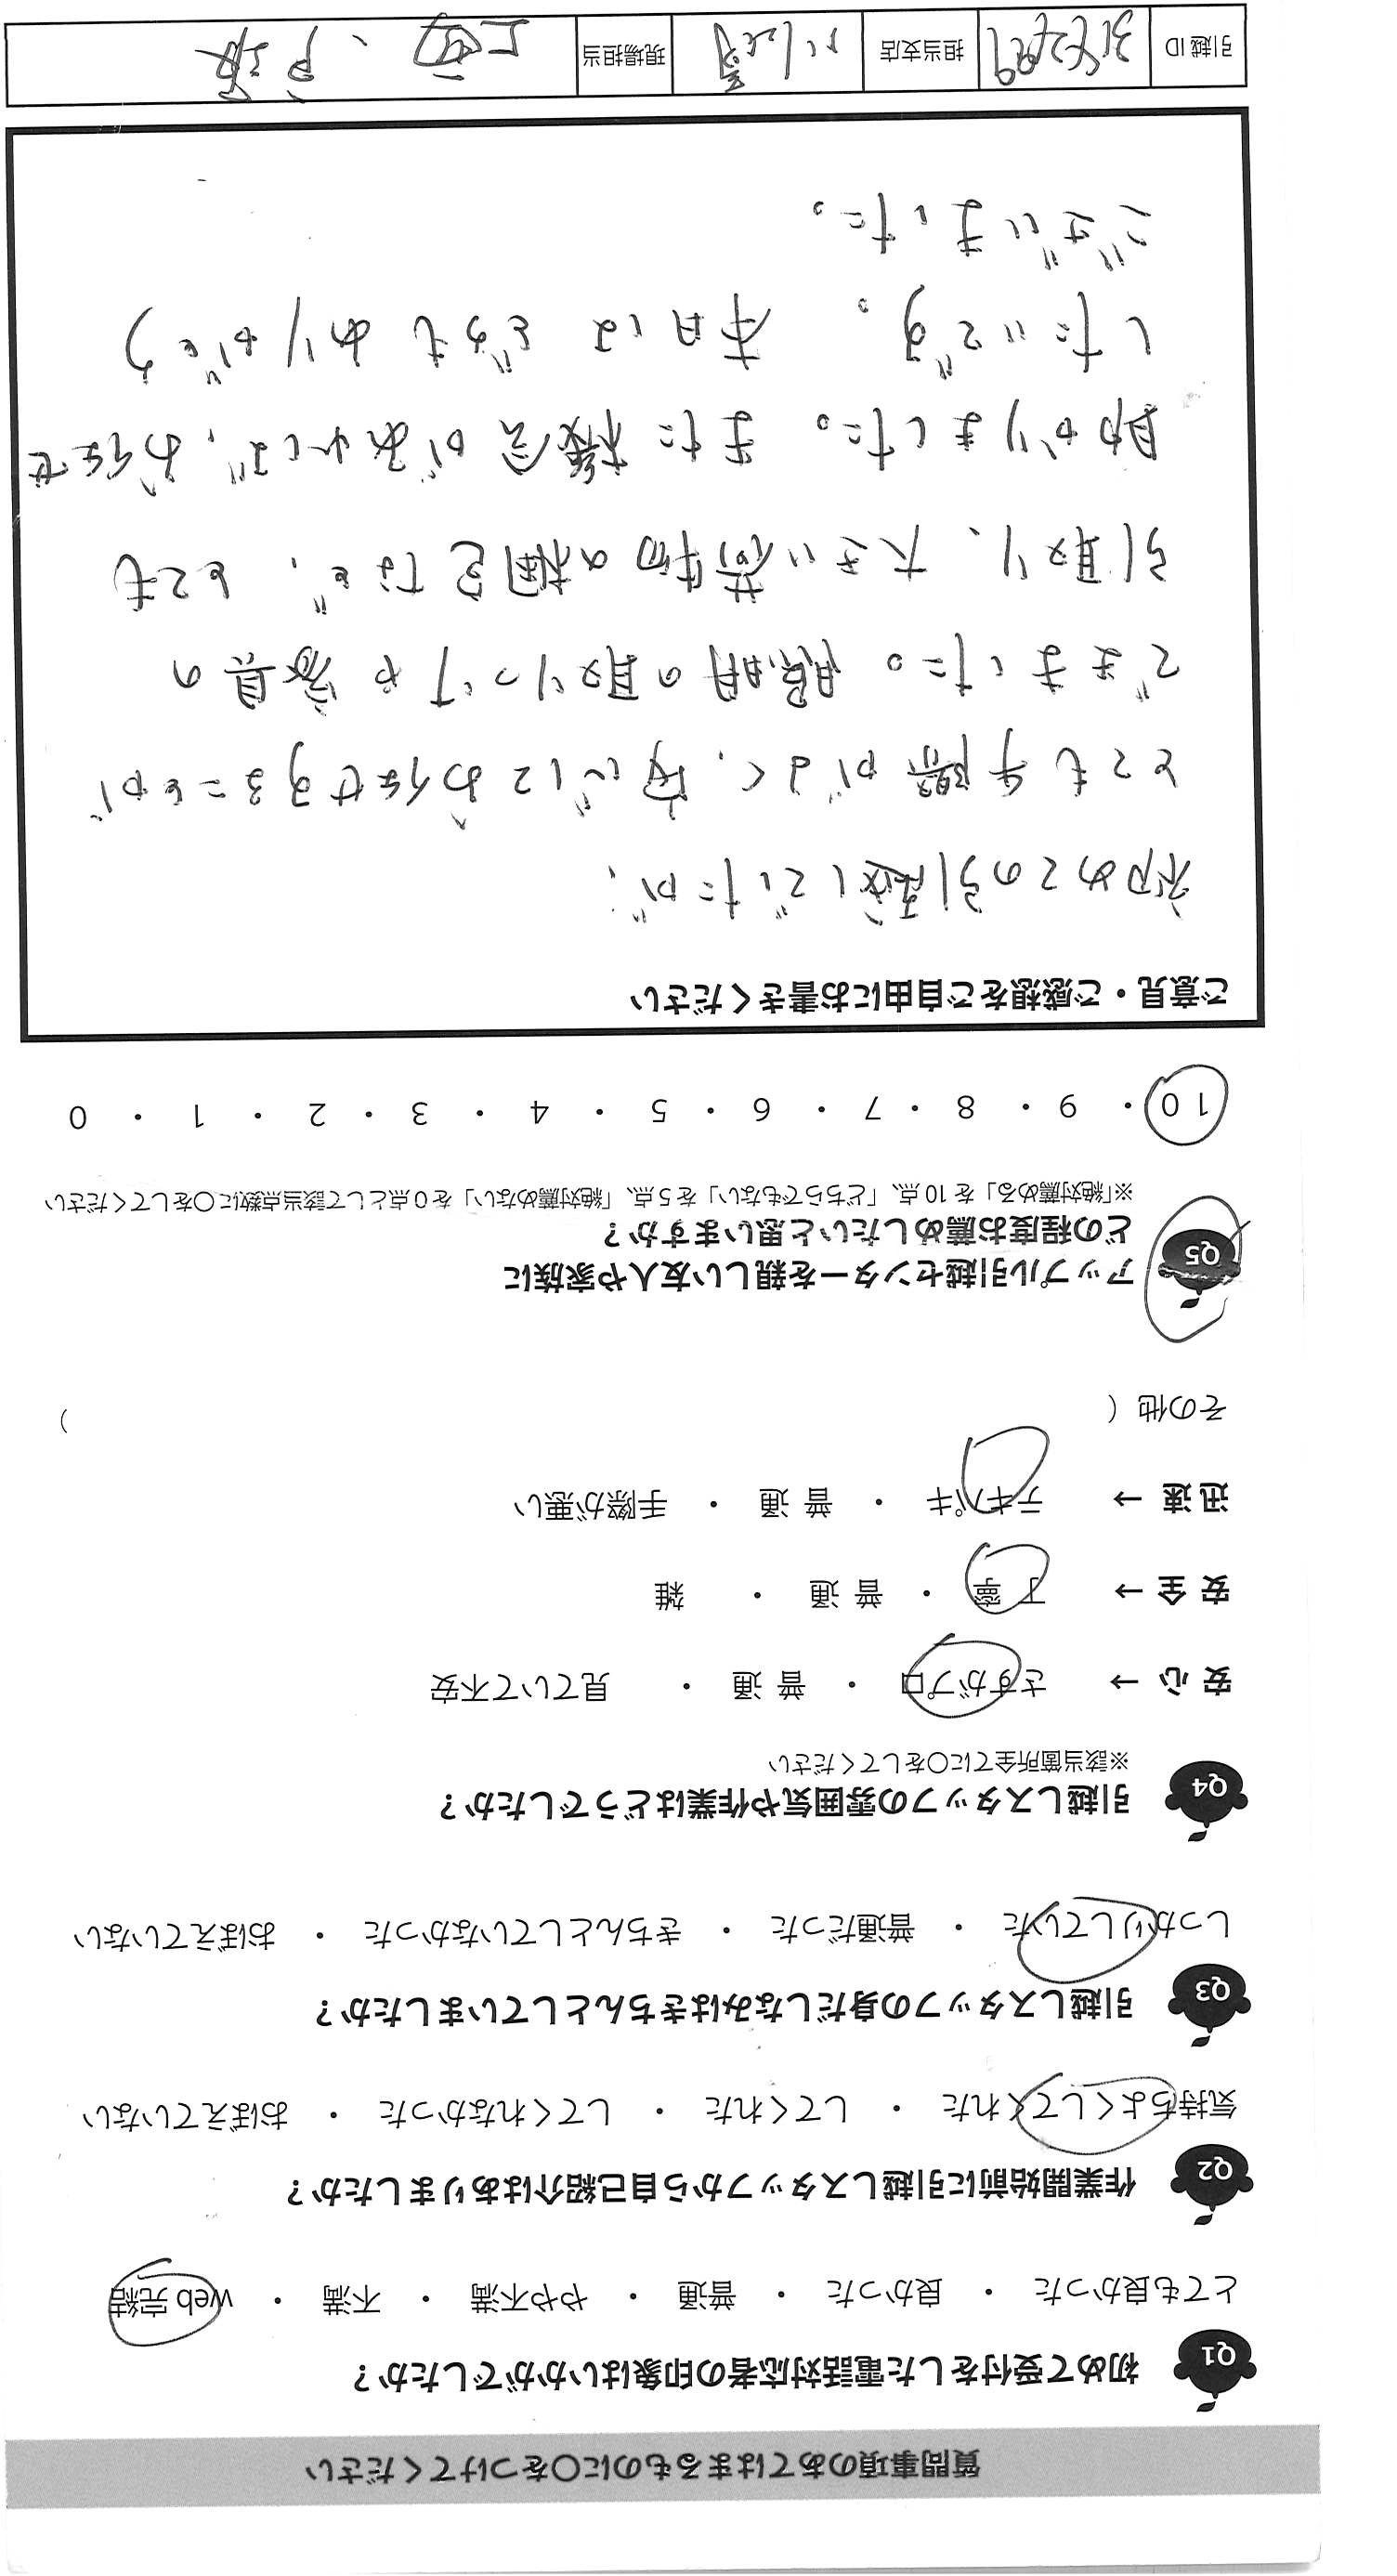 質問事項のあてはまるものに○をつけてください
Q1 初めて受付をした電話対応者の印象はいかがでしたか？
とても良かった ・ 良かった ・ 普通 ・ やや不満 ・ 不満 ・ web 完結
Q2 作業開始前に引越しスタッフから自己紹介はありましたか？
気持ちよくしてくれた ・ してくれた ・ してくれなかった ・ おぼえていない
Q3 引越しスタッフの身だしなみはきちんとしていましたか？
しっかりしていた ・ 普通だった ・ きちんとしていなかった ・ おぼえていない
Q4 引越しスタッフの雰囲気や作業はどうでしたか？
※該当箇所全てに○をしてください
安心 → さすがプロ ・ 普通 ・ 見ていて不安
安全 → 丁寧 ・ 普通 ・ 雑
迅速 → テキパキ ・ 普通 ・ 手際が悪い
その他 （ ）
Q5 アップル引越センターを親しい友人や家族に
どの程度お薦めしたいと思いますか？
※「絶対薦める」を 10 点、「どちらでもない」を 5 点、「絶対薦めない」を 0 点として該当点数に○をしてください
10 ・ 9 ・ 8 ・ 7 ・ 6 ・ 5 ・ 4 ・ 3 ・ 2 ・ 1 ・ 0
ご意見・ご感想をご自由にお書きください
初めての引越しでしたが、
とても手際がよく、安心してお任せすることが
できました。照明の取りつけや家具の
引取り、大きい荷物の梱包など、とても
助かりました。また機会があれば、お任せ
したいです。本日はどうもありがとう
ございました。
引越ID 担当支店 現場担当